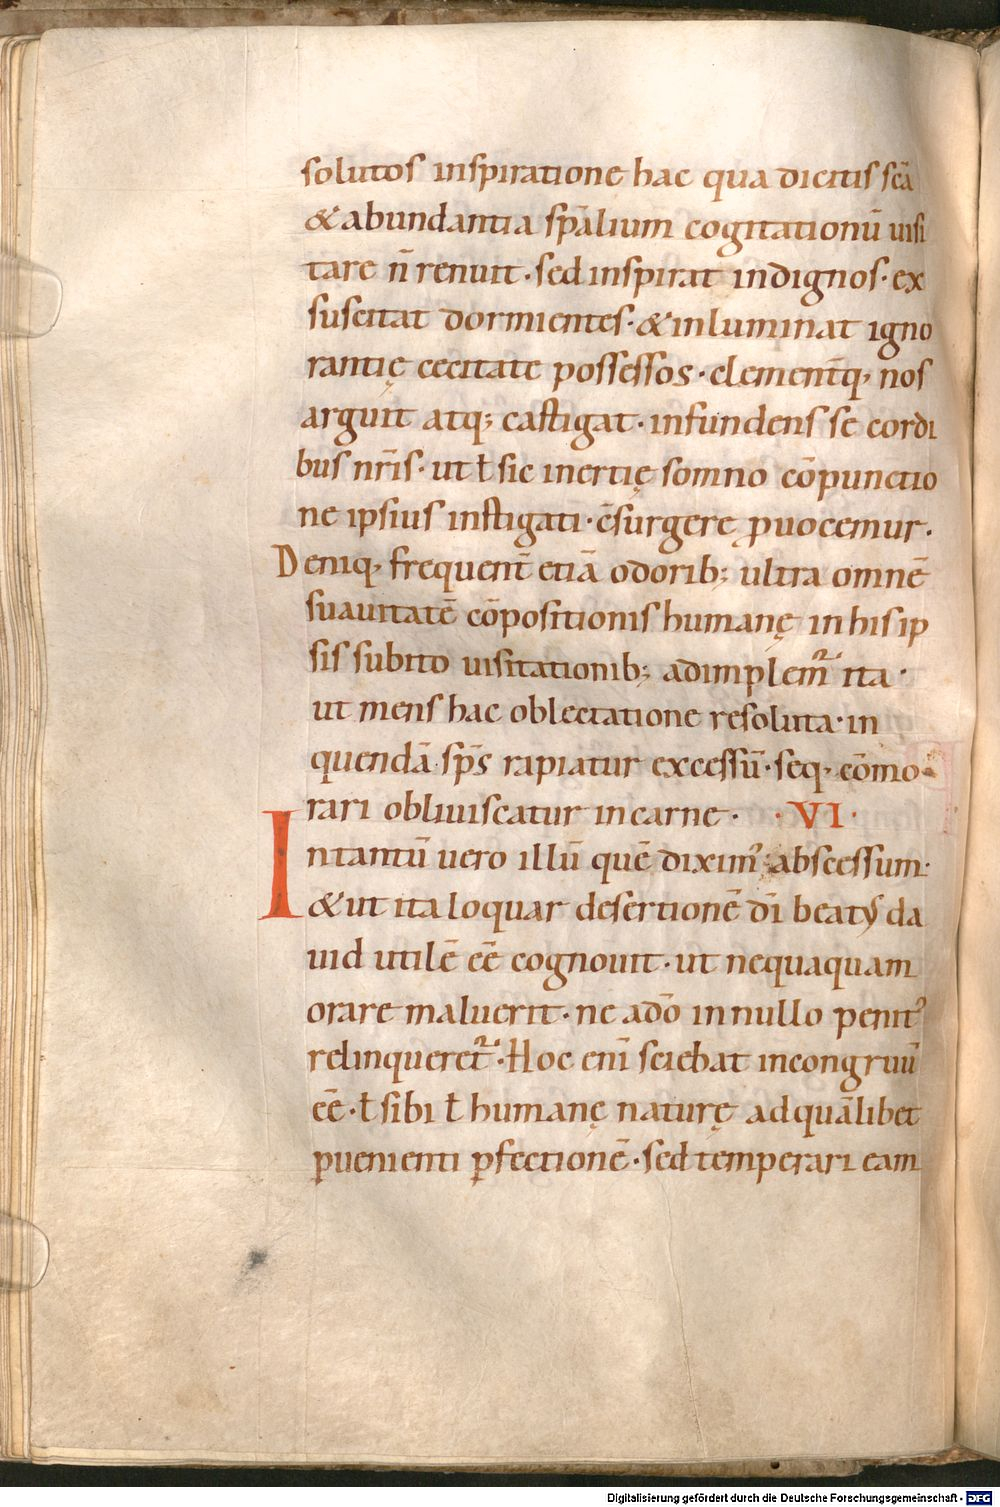 solutos inspiratione hac qua dicitis scā
& abundantia sp̄alium cogitationū uisi
tare n̄ renuit · sed inspirat indignos · ex
suscitat dormientes · & inluminat igno
rantię cecitate possessos · clement̄q; nos
arguit atq; castigat · infundens se cordi
bus nr̄is · ut ł sic inertię somno cōpunctio
ne ipsius instigati · c̄surgere ꝓuocemur ·
Deniq; frequent̄ etiā odorib; ultra omnē
suauitatē cōpositionis humanę in his ip
sis subito uisitationib; adimplem̄ ita ·
ut mens hac oblectatione resoluta · in
quendā sp̄s rapiatur excessū · seq; cōmo
rari obliuiscatur in carne · · VI ·
Intantū uero illū quē diximꝰ abscessum ·
& ut ita loquar desertionē dī beatꝰ da
uid utilē eē cognouit · ut nequaquam
orare maluerit · ne adō in nullo penitꝰ
relinqueret̄ · Hoc enī sciebat incongruū
eē · ł sibi ł humanę naturę ad quālibet
ꝑuenienti ꝑfectionē · sed temperari eam
Digitalisierung gefördert durch die Deutsche Forschungsgemeinschaft · DFG